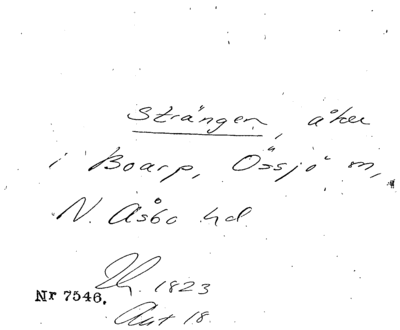 Strängen, åker
i Boarp, Össjö sn,
N. Åsbo hd.
1823
Nr 7546.
Akt 18.